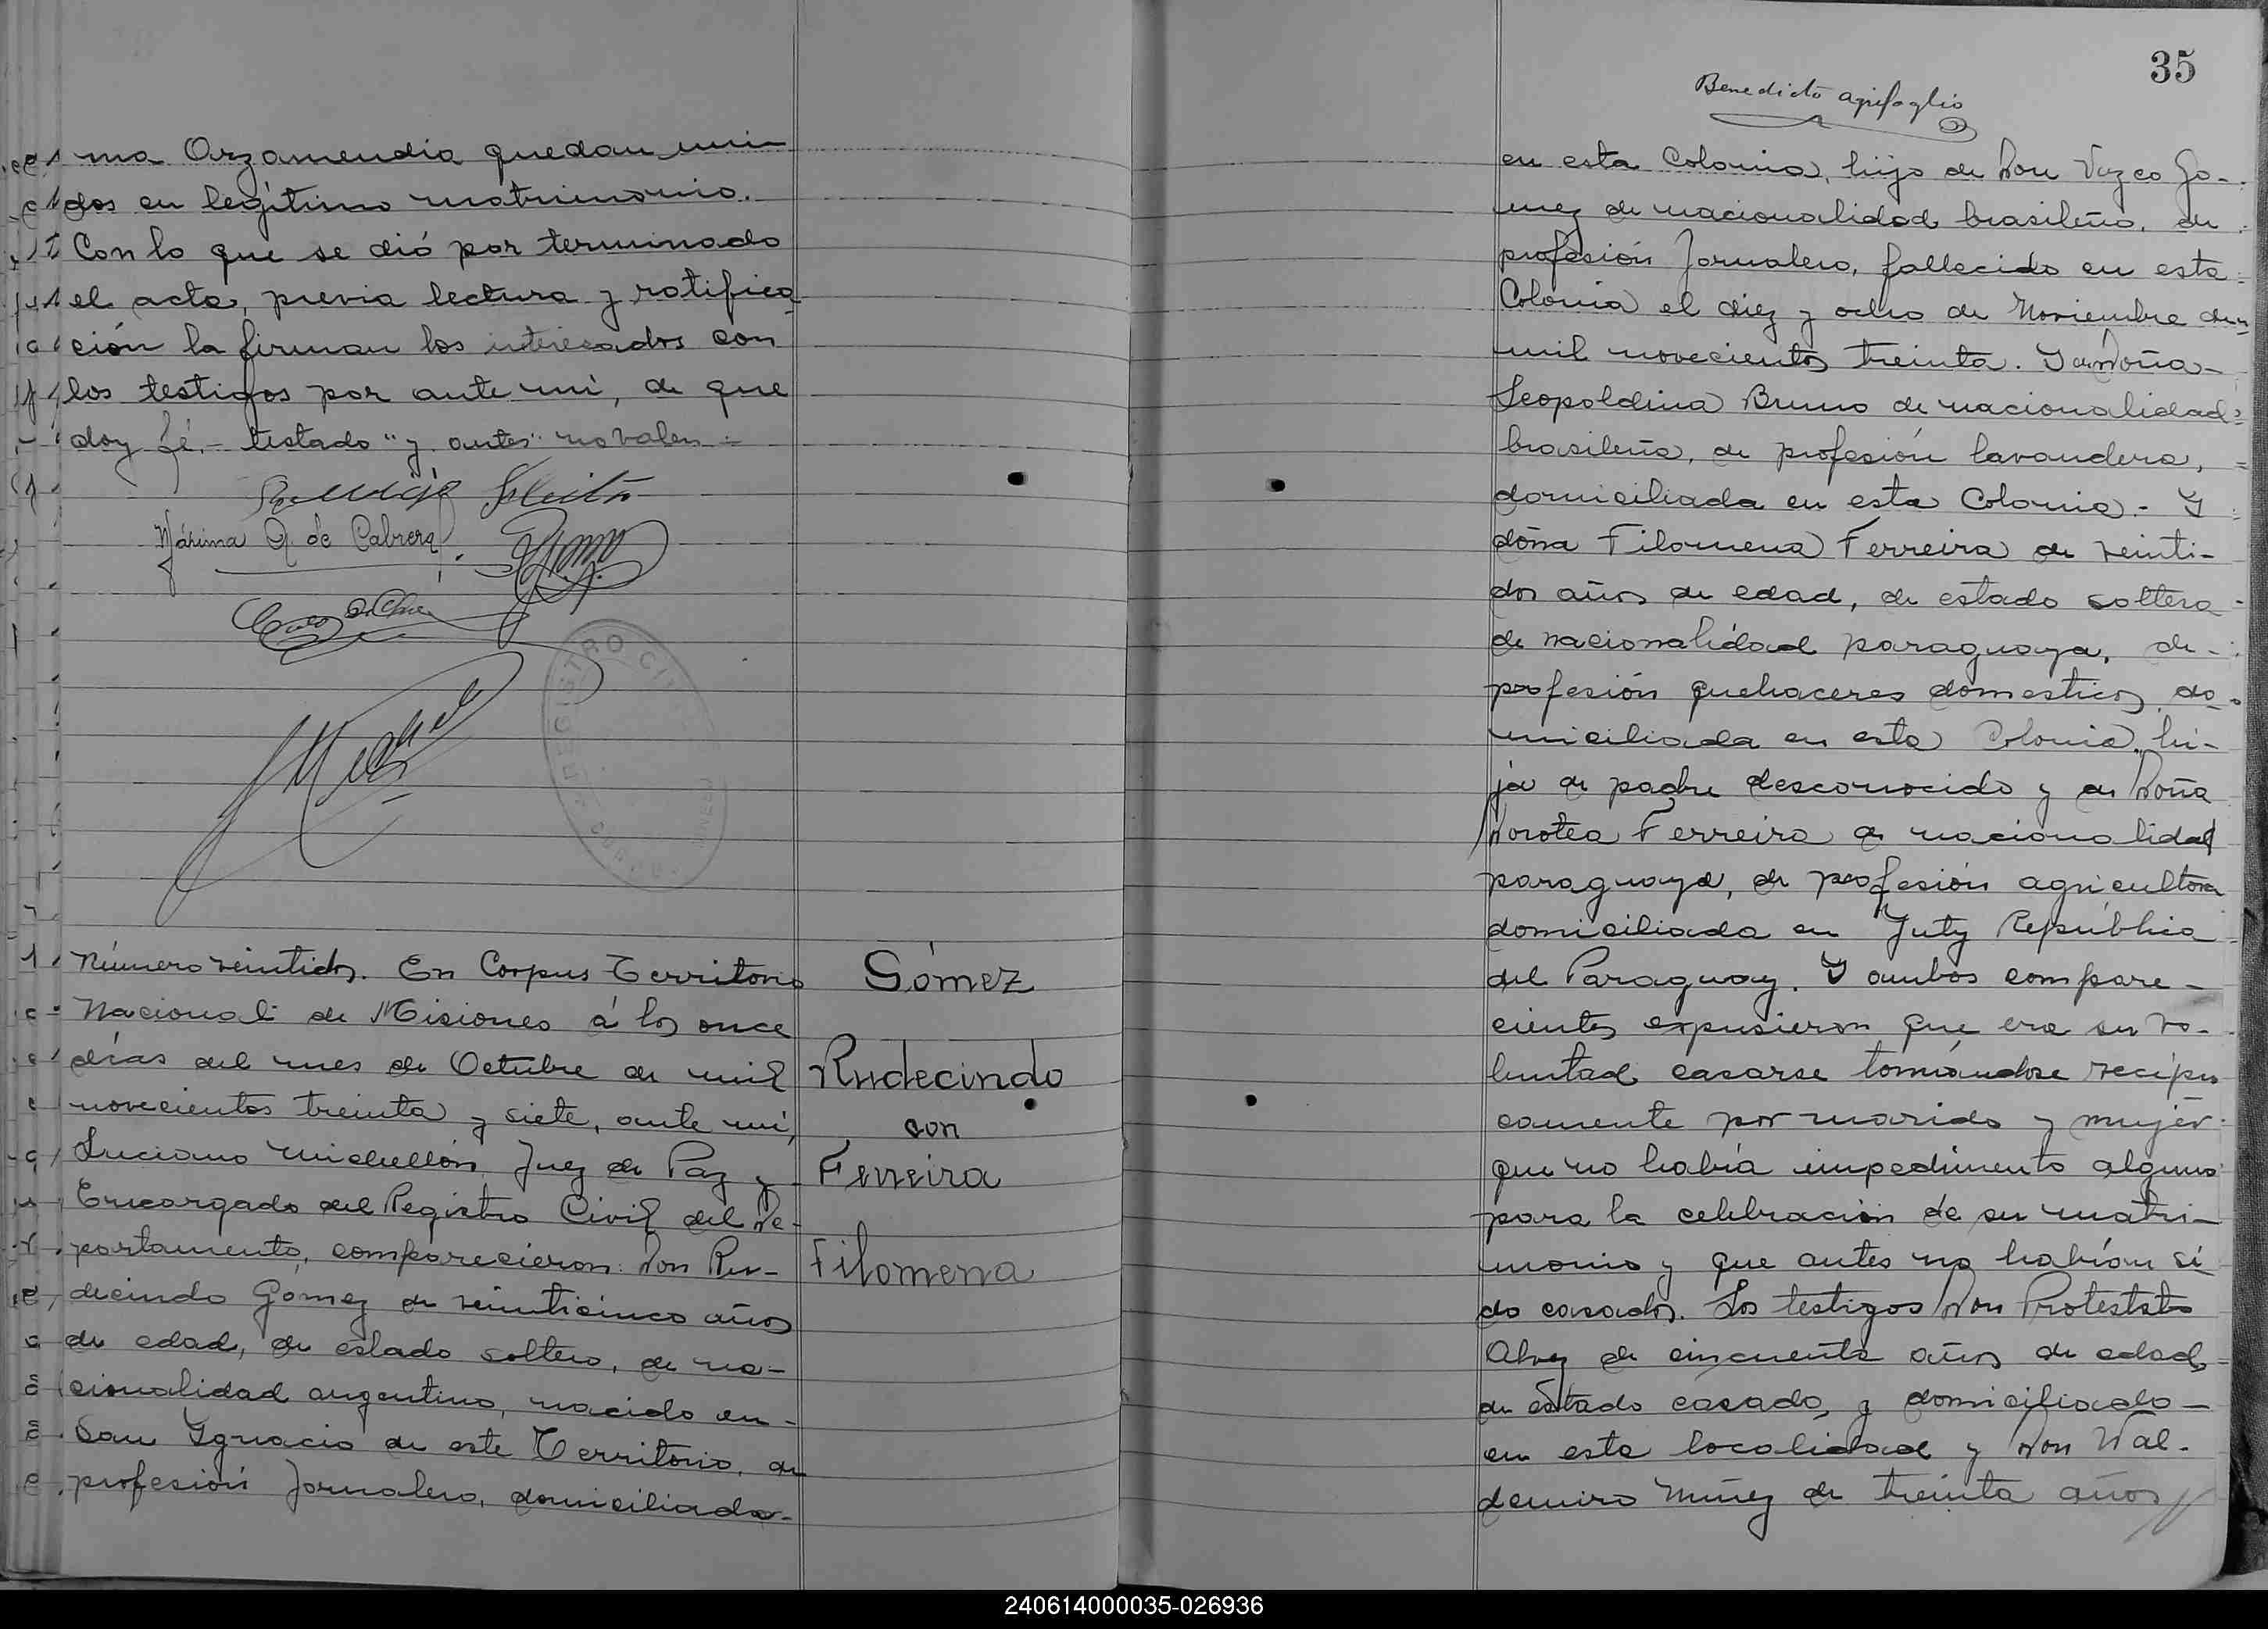 ma Orzamendia quedan uni-
dos en legítimo matrimonio.
Con lo que se dió por terminado
el acto, previa lectura y ratifica
ción la firman los interesados con
los testigos por ante mí, de que
doy fé. - testado "y antes" no valen =
Máxima O. de Cabrera
REGISTRO CIVIL
Número veintidos. En Corpus Territorio
Nacional de Misiones á los once
días del mes de Octubre de mil
novecientos treinta y siete, ante mí,
Luciano Michellón, Juez de Paz y
Encargado del Registro Civil del De-
partamento, comparecieron: Don Ru-
decindo Gómez de veinticinco años
de edad, de estado soltero, de na-
cionalidad argentino, nacido en -
San Ygnacio de este Territorio, de
profesión Jornalero, domiciliado -
Gómez
Rudecindo
con
Ferreira
Filomena
35
Benedicto Agrifoglio
en esta Colonia, hijo de Don Vazco Go-
mez de nacionalidad brasileño, de
profesión Jornalero, fallecido en esta
Colonia el diez y ocho de Noviembre de
mil novecientos treinta. Y de Doña -
Leopoldina Bruno de nacionalidad
brasileña, de profesión lavandera,
domiciliada en esta Colonia. - Y
doña Filomena Ferreira de veinti-
dos años de edad, de estado soltera
de nacionalidad paraguaya, de -
profesión quehaceres domesticos, do-
miciliada en esta Colonia, hi-
ja de padre desconocido y de Doña
Dorotea Ferreira de nacionalidad
paraguaya, de profesión agricultora
domiciliada en Yuty República
del Paraguay. Y ambos compare-
cientes expusieron que era su vo-
luntad casarse tomándose recipro
camente por marido y mujer
que no había impedimento alguno
para la celebración de su matri-
monio y que antes no habían si
do casados. Los testigos Don Protestato
Alvez de cincuenta años de edad
de estado casado, y domiciliado -
en esta localidad y Don Wal-
demiro Nuñez de treinta años
240614000035-026936